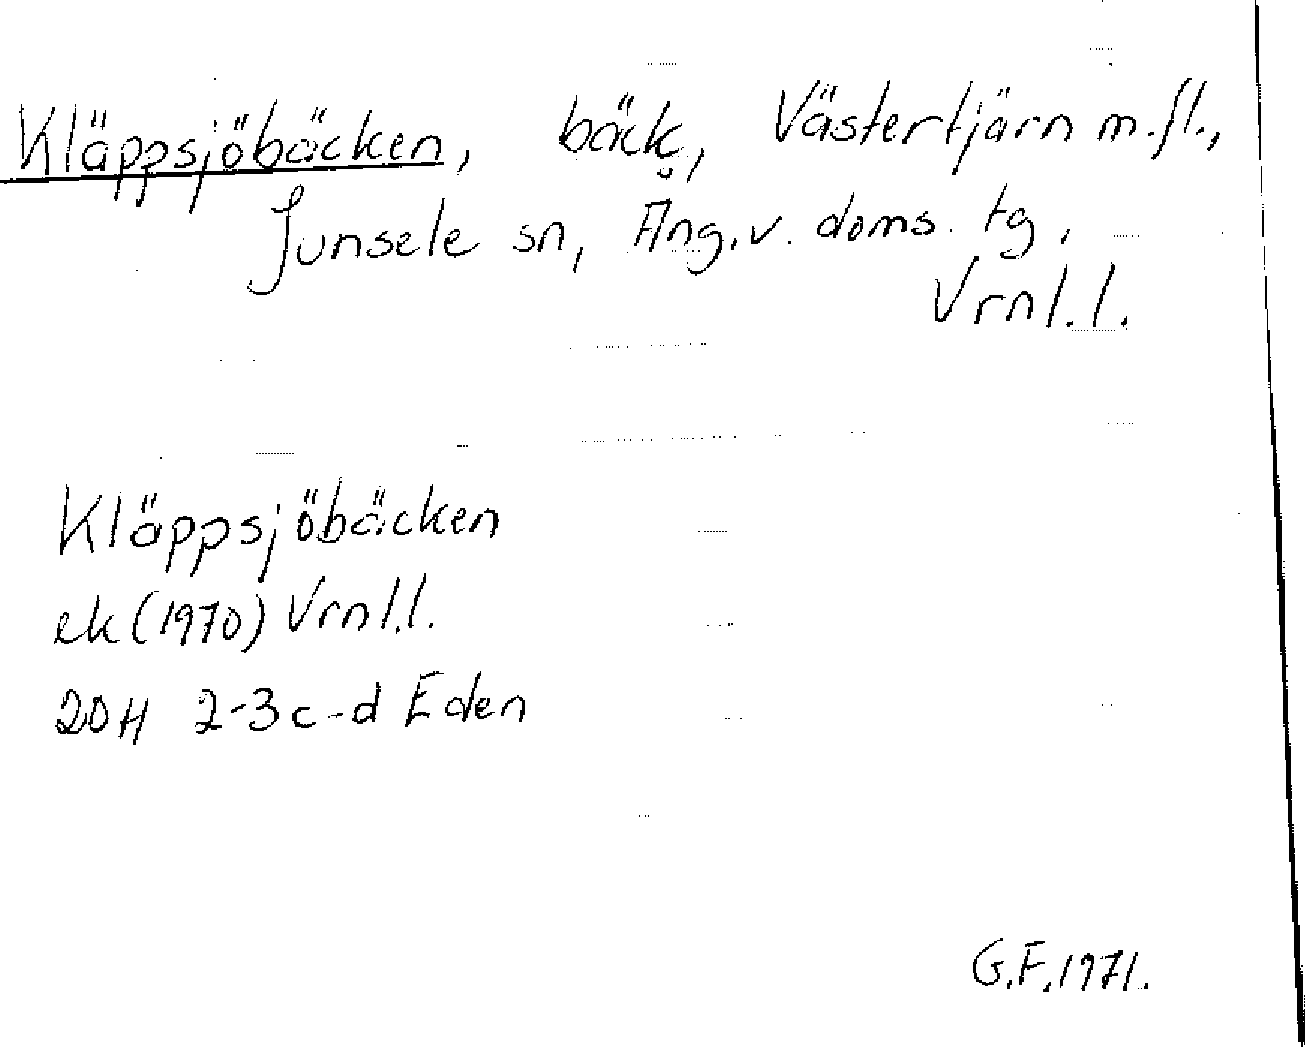 Kläppsjöbäcken, bäck, Västertjärn m.fl.,
Junsele sn, Ång.v. doms. tg,
Vrnl.l.
Kläppsjöbäcken
ek (1970) Vrnl.l.
20H 2-3c-d Eden
G.F. 1971.